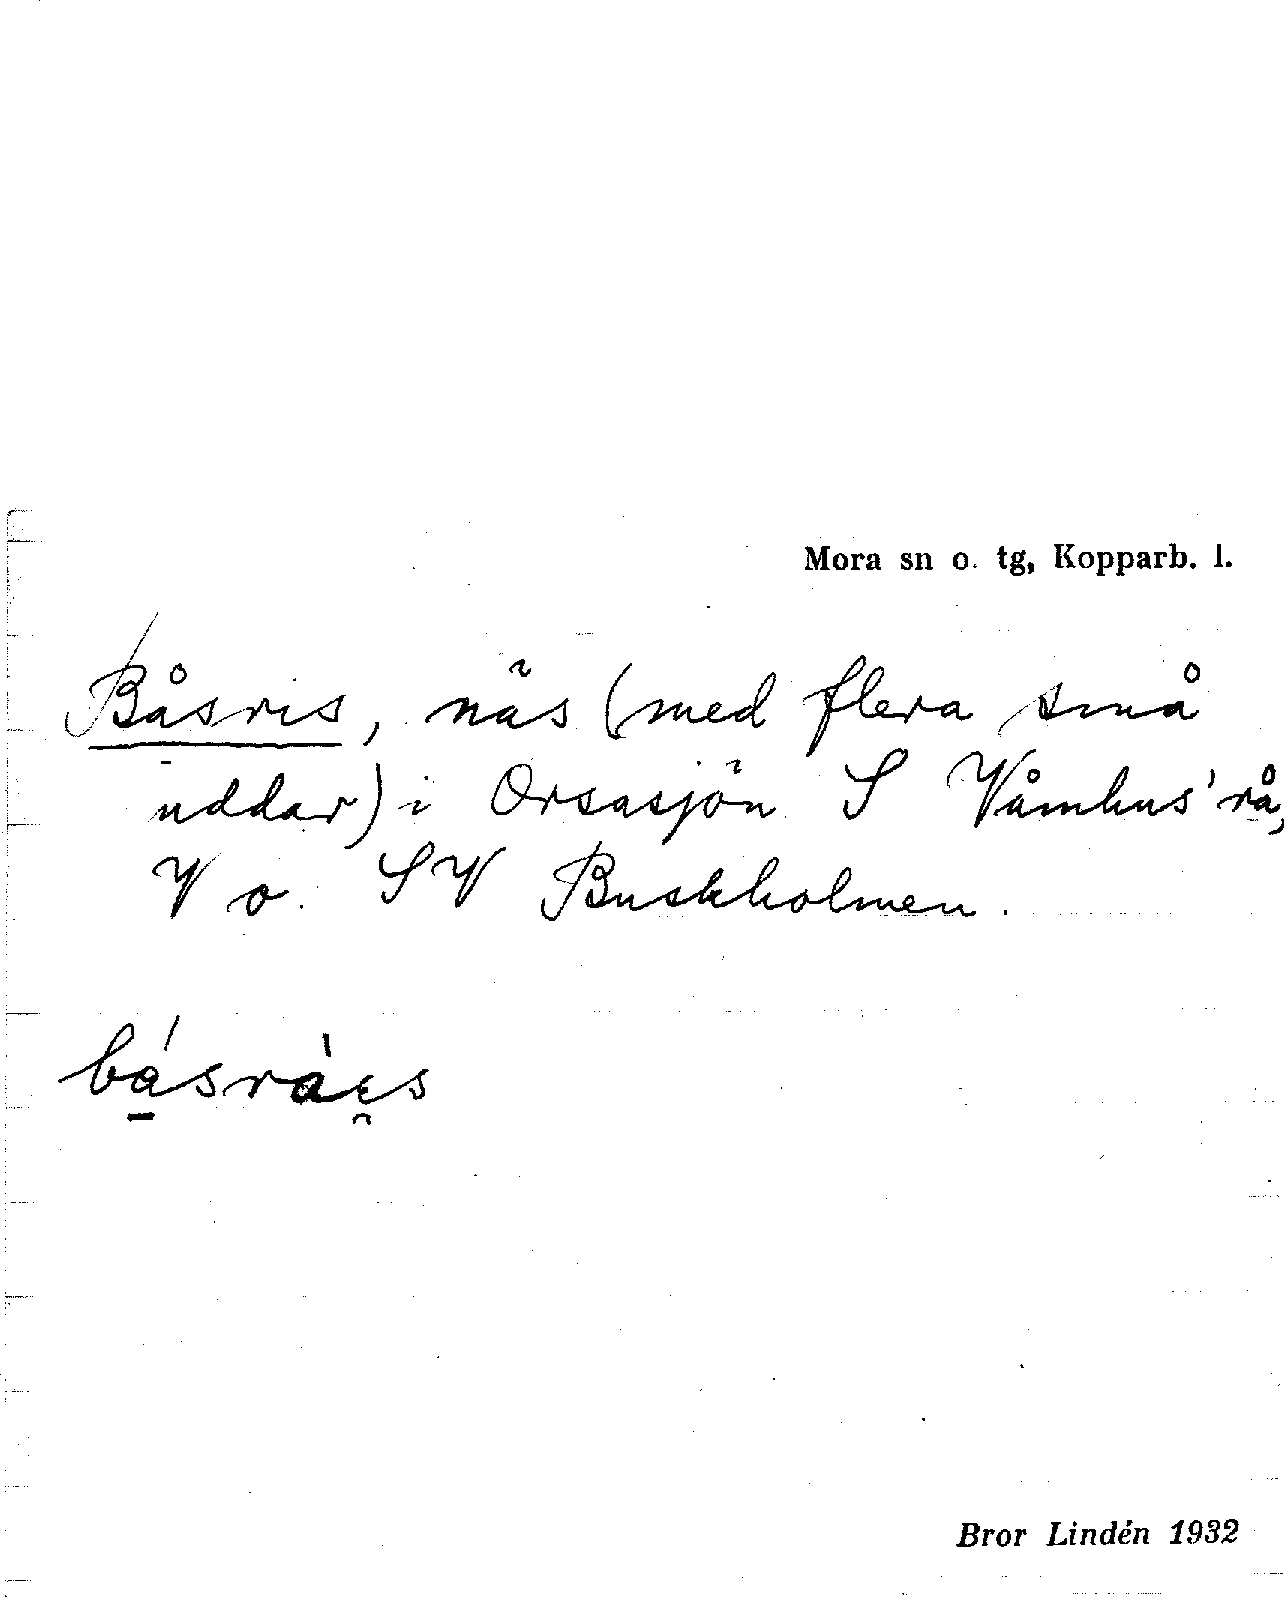 Mora sn o. tg, Kopparb. l.
Båsris, näs (med flera små
uddar) i Orsasjön S Våmhus'rå,
V o. SV Buskholmen.
bá̱sràε̯s
Bror Lindén 1932